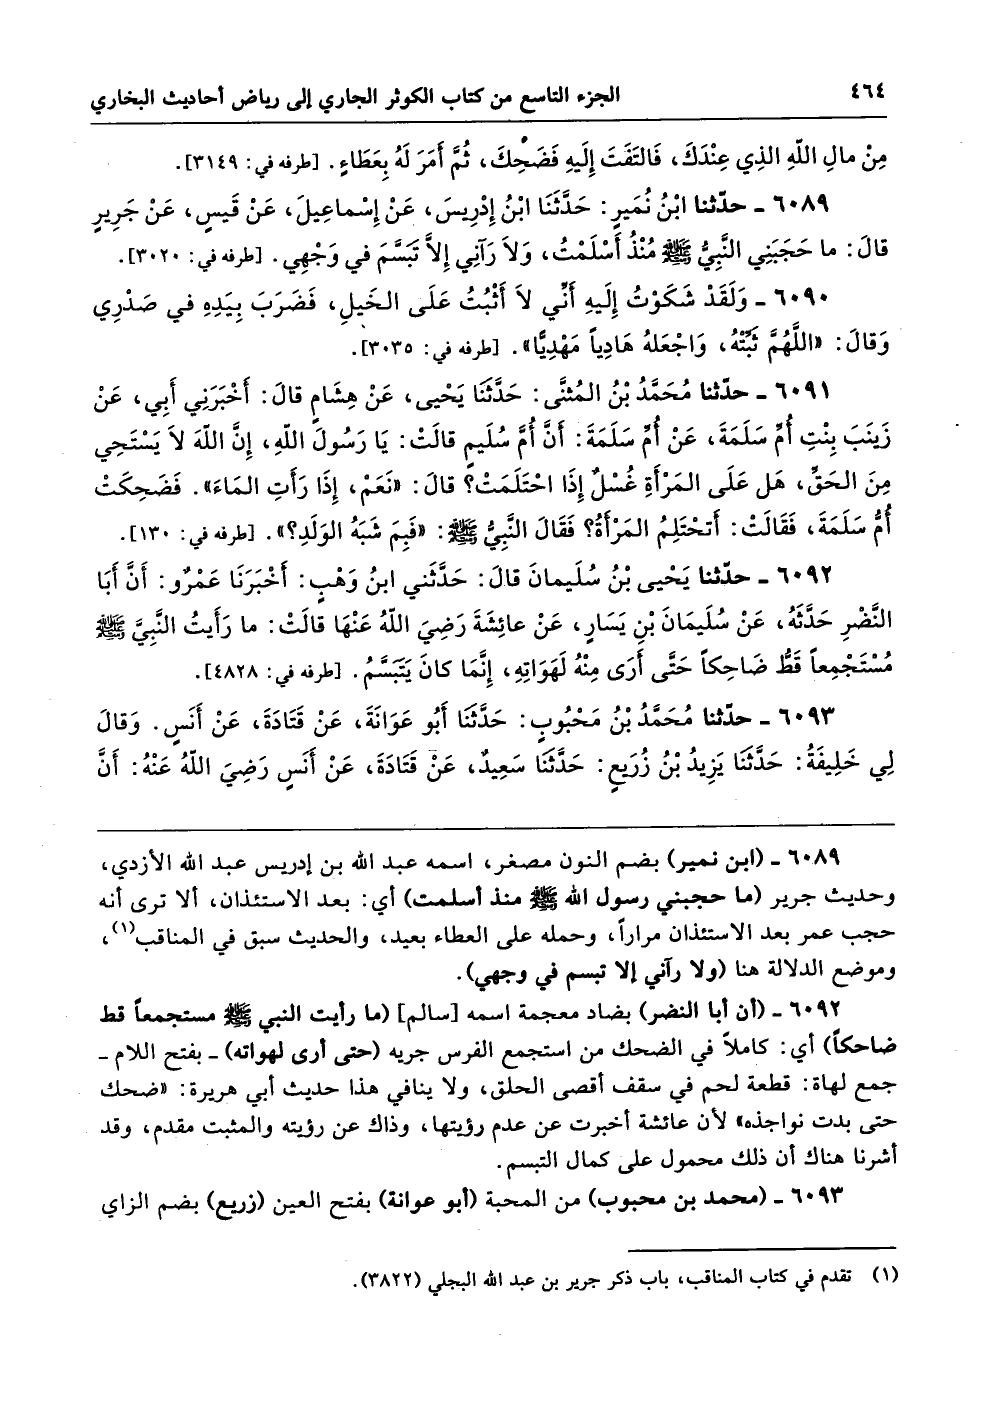 ٤٦٤ الجزء التاسع من كتاب الكوثر الجاري إلى رياض أحاديث البخاري
مِنْ مالِ اللّهِ الذِي عِنْدَكَ، فَالتَفَتَ إِلَيهِ فَضَحِكَ، ثُمَّ أَمَرَ لَهُ بِعَطَاءٍ. [طرفه في: ٣١٤٩].
٦٠٨٩ ـ حدّثنا ابْنُ نُمَيرٍ: حَدَّثَنَا ابْنُ إِدْرِيسَ، عَنْ إِسْماعِيلَ، عَنْ قَيسٍ، عَنْ جَرِيرٍ
قالَ: ما حَجَبَنِي النَّبِيُّ ﷺ مُنْذُ أَسْلَمْتُ، وَلاَ رَآنِي إِلاَّ تَبَسَّمَ في وَجْهِي. [طرفه في: ٣٠٢٠].
٦٠٩٠ ـ وَلَقَدْ شَكَوْتُ إِلَيهِ أَنِّي لاَ أَثْبُتُ عَلَى الخَيلِ، فَضَرَبَ بِيَدِهِ في صَدْرِي
وَقالَ: «اللَّهُمَّ ثَبِّتْهُ، وَاجْعَلهُ هَادِياً مَهْدِيًّا». [طرفه في: ٣٠٣٥].
٦٠٩١ ـ حدّثنا مُحَمَّدُ بْنُ المُثنَّى: حَدَّثَنَا يَحْيى، عَنْ هِشَامٍ قالَ: أَخْبَرَنِي أَبِي، عَنْ
زَينَبَ بِنْتِ أُمِّ سَلَمَةَ، عَنْ أُمِّ سَلَمَةَ: أَنَّ أُمَّ سُلَيمٍ قالَتْ: يَا رَسُولَ اللّهِ، إِنَّ اللّهَ لاَ يَسْتَحِي
مِنَ الحَقِّ، هَل عَلَى المَرْأَةِ غُسْلٌ إِذَا احْتَلَمَتْ؟ قالَ: «نَعَمْ، إِذَا رَأَتِ المَاءَ». فَضَحِكَتْ
أُمُّ سَلَمَةَ، فَقَالَتْ: أَتحْتَلِمُ المَرْأَةُ؟ فَقَالَ النَّبِيُّ ﷺ: «فَبِمَ شَبَهُ الوَلَدِ؟». [طرفه في: ١٣٠].
٦٠٩٢ ـ حدّثنا يَحْيى بْنُ سُلَيمانَ قالَ: حَدَّثَني ابنُ وَهْبٍ: أَخْبَرَنَا عَمْرٌو: أَنَّ أَبَا
النَّضْرِ حَدَّثَهُ، عَنْ سُلَيمَانَ بْنِ يَسَارٍ، عَنْ عائِشَةَ رَضِيَ اللّهُ عَنْهَا قالَتْ: ما رَأَيتُ النَّبِيَّ ﷺ
مُسْتَجْمِعاً قَطُّ ضَاحِكاً حَتَّى أَرَى مِنْهُ لَهَوَاتِهِ، إِنَّمَا كانَ يَتَبَسَّمُ. [طرفه في: ٤٨٢٨].
٦٠٩٣ ـ حدّثنا مُحَمَّدُ بْنُ مَحْبُوبٍ: حَدَّثَنَا أَبُو عَوَانَةَ، عَنْ قَتَادَةَ، عَنْ أَنَسٍ. وَقالَ
لِي خَلِيفَةُ: حَدَّثَنَا يَزِيدُ بْنُ زُرَيعٍ: حَدَّثَنَا سَعِيدٌ، عَنْ قَتَادَةَ، عَنْ أَنَسٍ رَضِيَ اللّهُ عَنْهُ: أَنَّ
٦٠٨٩ ـ (ابن نمير) بضم النون مصغر، اسمه عبد الله بن إدريس عبد الله الأزدي،
وحديث جرير (ما حجبني رسول الله ﷺ منذ أسلمت) أي: بعد الاستئذان، ألا ترى أنه
حجب عمر بعد الاستئذان مراراً، وحمله على العطاء بعيد، والحديث سبق في المناقب(١)،
وموضع الدلالة هنا (ولا رآني إلا تبسم في وجهي).
٦٠٩٢ ـ (أن أبا النضر) بضاد معجمة اسمه [سالم] (ما رأيت النبي ﷺ مستجمعاً قط
ضاحكاً) أي: كاملاً في الضحك من استجمع الفرس جريه (حتى أرى لهواته) ـ بفتح اللام ـ
جمع لهاة: قطعة لحم في سقف أقصى الحلق، ولا ينافي هذا حديث أبي هريرة: «ضحك
حتى بدت نواجذه» لأن عائشة أخبرت عن عدم رؤيتها، وذاك عن رؤيته والمثبت مقدم، وقد
أشرنا هناك أن ذلك محمول على كمال التبسم.
٦٠٩٣ ـ (محمد بن محبوب) من المحبة (أبو عوانة) بفتح العين (زريع) بضم الزاي
(١) تقدم في كتاب المناقب، باب ذكر جرير بن عبد الله البجلي (٣٨٢٢).